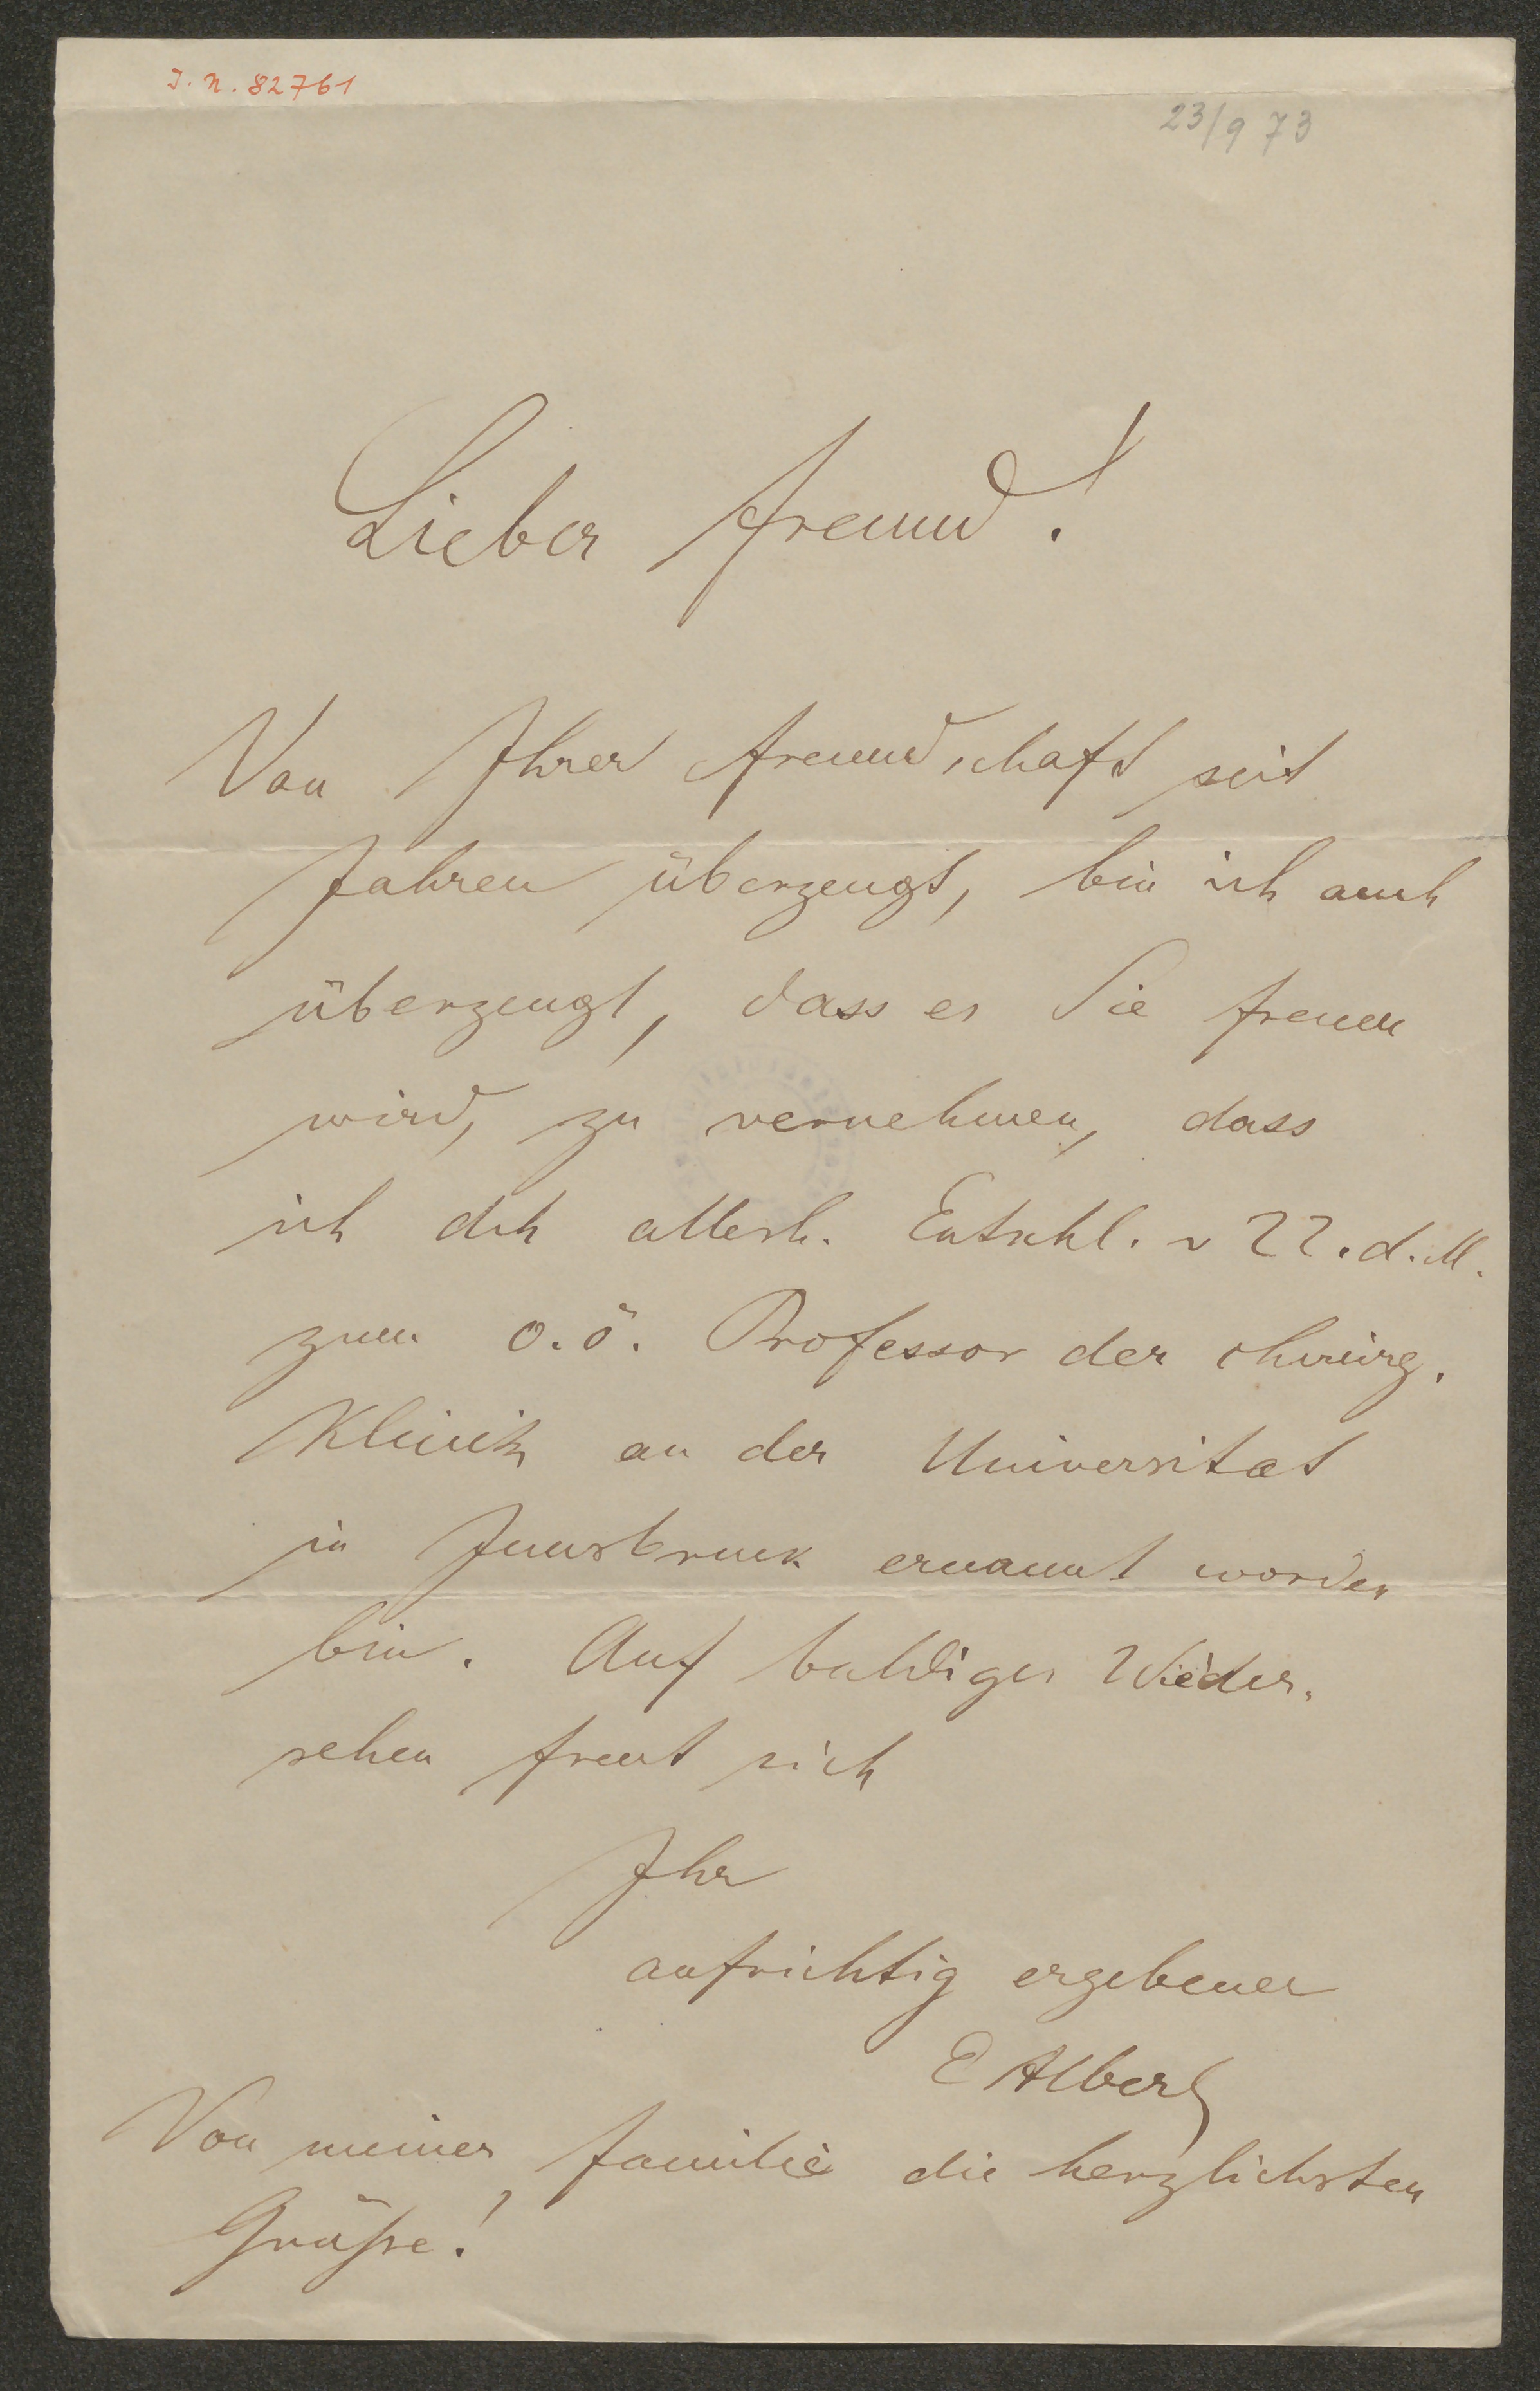 I. N. 82761
23/9 73
Lieber Freund!
Von Ihrer Freundschaft seit
Jahren überzeugt, bin ich auch
überzeugt, dass es Sie freuen
wird, zu vernehmen, dass
ich dch allerh. Entschl. v 22. d. M.
zum o. ö. Professor der chirurg.
Klinik an der Universitæt
in Innsbruck ernannt worden
bin. Auf baldiges Wieder-
sehen freut sich
Ihr
aufrichtig ergebener
E Albert
Von meiner Familie die herzlichsten
Grüße!